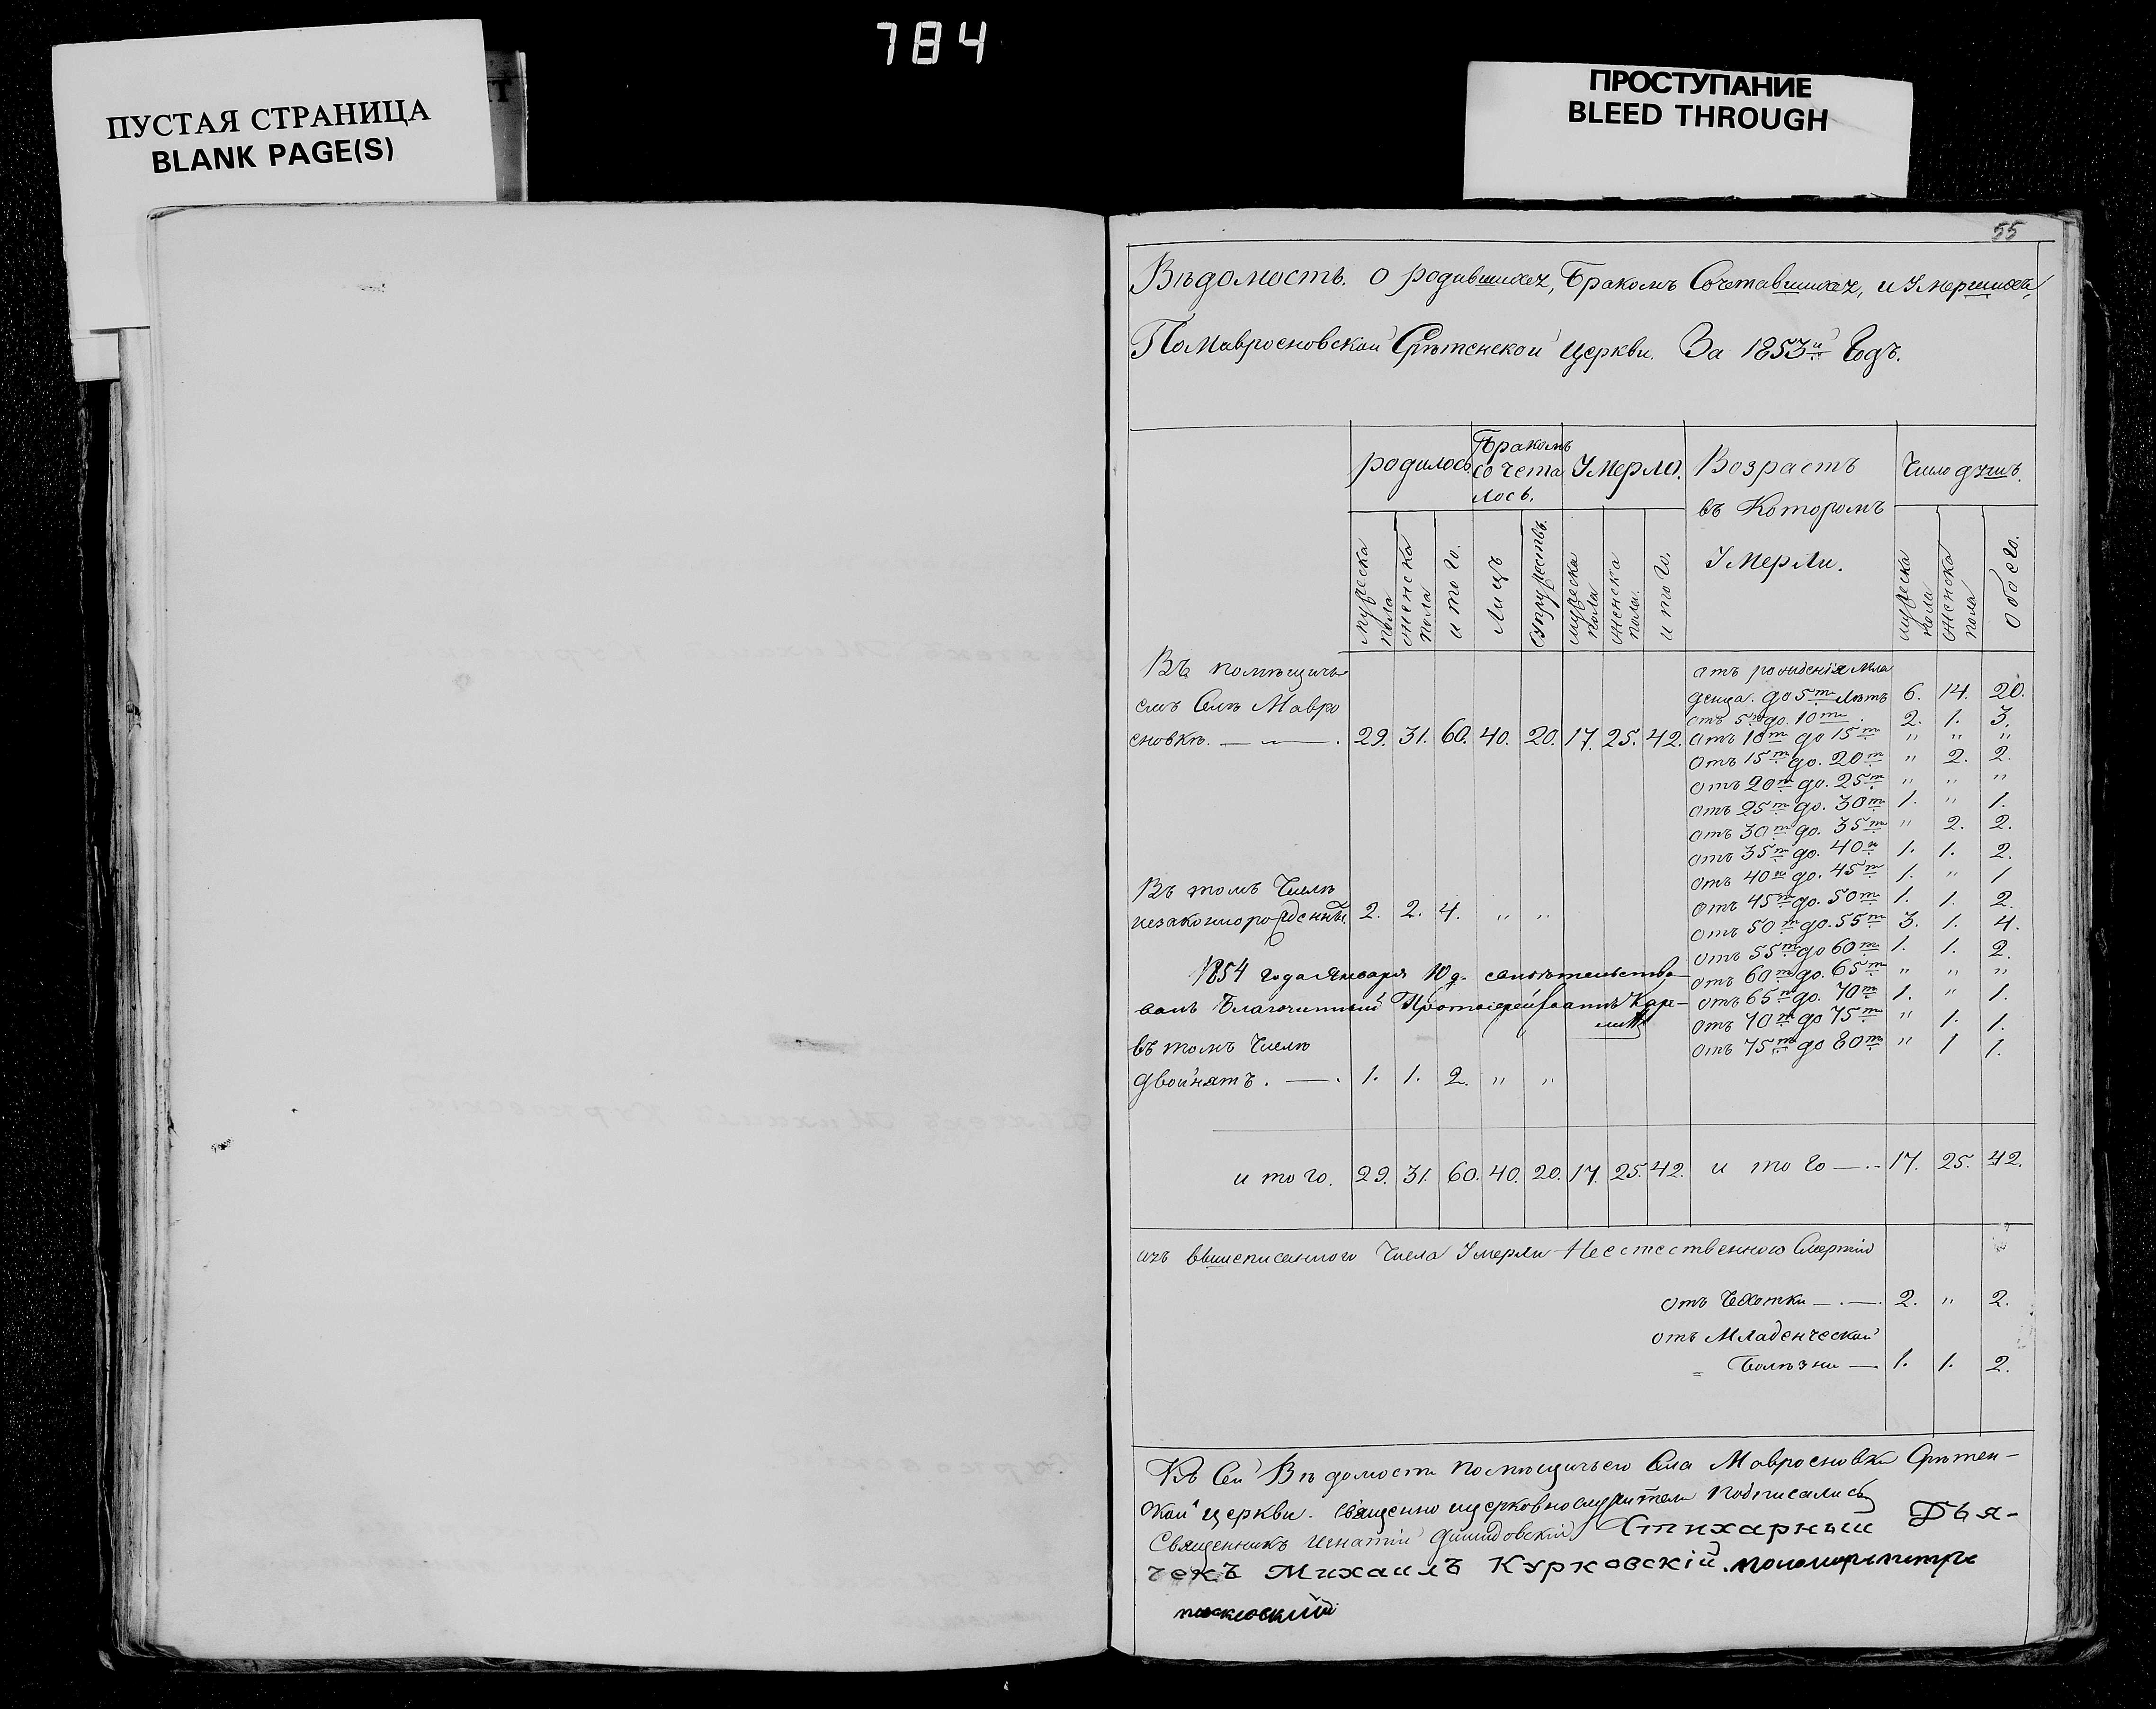 784
ПУСТАЯ СТРАНИЦА
BLANK PAGE(S)
ПРОСТУПАНИЕ
BLEED THROUGH
55
Вѣдомость. о родившихся, Бракомъ Сочетавшихся, и Умершихъ,
По Мавросновской Срѣтенской Церкви. За 1853й Годъ.
родилось
Бракомъ
сочета
лось.
Умерло.
Возрастъ
въ Которомъ
Умерли.
Число душъ.
мужеска пола
женска пола
итого.
Лицъ
Супружествъ.
мужеска пола
женска пола.
итого.
мужеска пола
женска пола
Обоего.
Въ помѣщичь
емъ Селѣ Мавро
сновкѣ. 29. 31. 60. 40. 20. 17. 25. 42.
отъ рожденія мла
денца. до 5т Лѣтъ 6. 14. 20.
отъ 5т до. 10т 2. 1. 3.
отъ 10т до 15т " " "
отъ 15т до. 20т " 2. 2.
отъ 20т до. 25т " " "
отъ 25т до. 30т 1. " 1.
отъ 30т до. 35т " 2. 2.
отъ 35т до. 40т 1. 1. 2.
отъ 40т до. 45т 1. " 1
отъ 45т до. 50т 1. 1. 2.
отъ 50т до. 55т 3. 1. 4.
отъ 55т до 60т 1. 1. 2.
отъ 60т до. 65т " " "
отъ 65т до. 70т 1. " 1.
отъ 70т до 75т " 1. 1.
отъ 75т до 80т " 1 1.
Въ томъ Числѣ
незаконнорожденныхъ 2. 2. 4. " "
1854 года Января 10 д. свидѣтельство
валъ Благочинный Протоіерей
въ томъ Числѣ
двойнятъ. 1. 1. 2. " "
итого. 29. 31. 60. 40. 20. 17. 25. 42. итого 17. 25. 42.
изъ вышеписанного Числа Умерли Неестественною Смертію
отъ Чехотки 2. " 2.
отъ Младенческой
Болѣзни 1. 1. 2.
Къ Сей Вѣдомости помѣщичьего Села Мавросновки Срѣтен-
ской церкви. Священно церковнослужители подписались
Священникъ Игнатій Стихарный Дья-
чекъ Михаилъ Курковскій. пономарь петръ